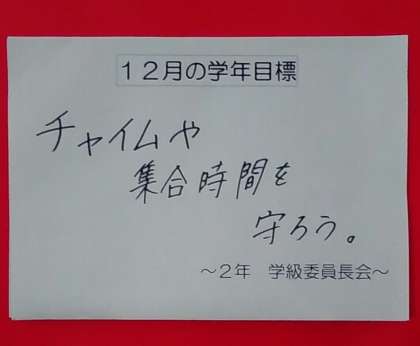 １２月の学年目標
チャイムや
集合時間を
守ろう。
～２年　学級委員長会～